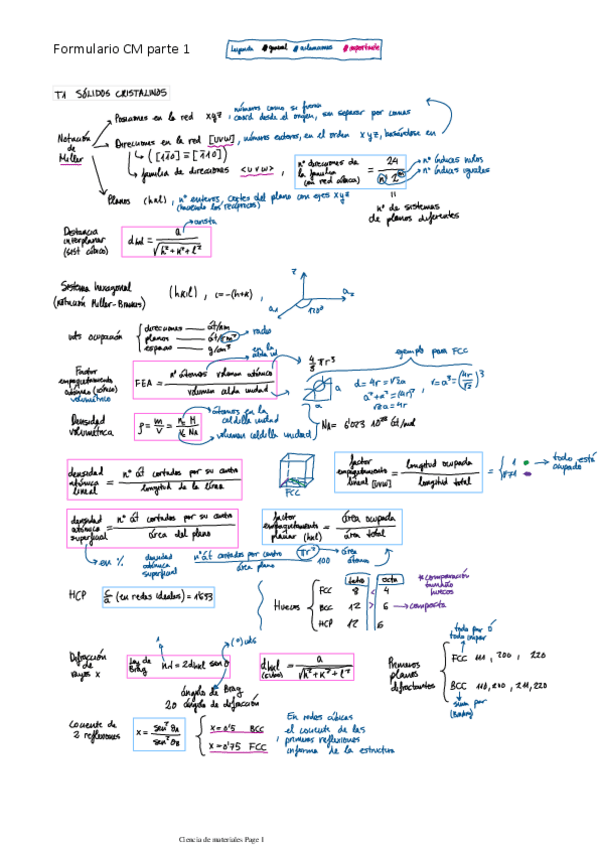 Formulario CM parte 1
Leyenda # general # aclaraciones # importante
T1 SÓLIDOS CRISTALINOS
Notación de Miller
Posiciones en la red xyz, números como si fueran coord desde el origen, sin separar por comas
Direcciones en la red [uvw], números enteros, en el orden xyz, basándose en
([1̄10] = [1̄10])
familia de direcciones <uvw>,
nº direcciones de la familia (en red cúbica) = 24
nº índices nulos
nº índices iguales
nº de sistemas de planos diferentes
Planos (hkl), nº enteros, cortes del plano con ejes xyz
(haciendo los recíprocos)
Distancia interplanar (sist cúbico)
d hkl = a / √h²+k²+l²
Sistema hexagonal (notación Miller-Bravais)
(hkil), i=-(h+k),
z
a₁
a₂
120º
uds ocupación
direcciones — át/nm
planos — át/nm²
espacio — g/cm³
radio
Factor empaquetamiento atómico (cúbico) volumétrico
FEA = nº átomos volumen atómico / volumen celda unidad
en la celda ud
4/3 πr³
ejemplo para FCC
a
a
a
d = 4r = √2a
a²+a² = (4r)²
√2a = 4r
v=a³=(4r/√2)³
Densidad volumétrica
átomos en la celdilla unidad
volumen celdilla unidad
át/mol
densidad atómica lineal = nº át cortados por su centro / longitud de la línea
FCC
factor empaquetamiento lineal [uvw] = longitud ocupada / longitud total
1
todo está ocupado
densidad atómica superficial = nº át cortados por su centro / área del plano
factor empaquetamiento planar (hkl) = área ocupada / área total
en %
densidad atómica superficial
nº át cortados por centro πr² / área plano 100
área átomo
HCP
c/a (en redes ideales) = 1'633
Huecos
tetra octa
FCC 8 4
BCC 12 > 6 → compacta
HCP 12 6
*comparación tamaño huecos
Difracción de rayos x
Ley de Brag
1
nλ = 2dhkl senθ
(º) uds
ángulo de Brag
2θ ángulo de difracción
dhkl (cúbico) = a / √h²+k²+l²
Primeros planos difractantes
todo par ó todo impar
FCC 111, 200, 220
BCC 110, 200, 211, 220
suma par
Cociente de 2 reflexiones
x = sen²θA / sen²θB
x = 0'5 BCC
x = 0'75 FCC
En redes cúbicas el cociente de las primeras reflexiones informa de la estructura
Ciencia de materiales Page 1